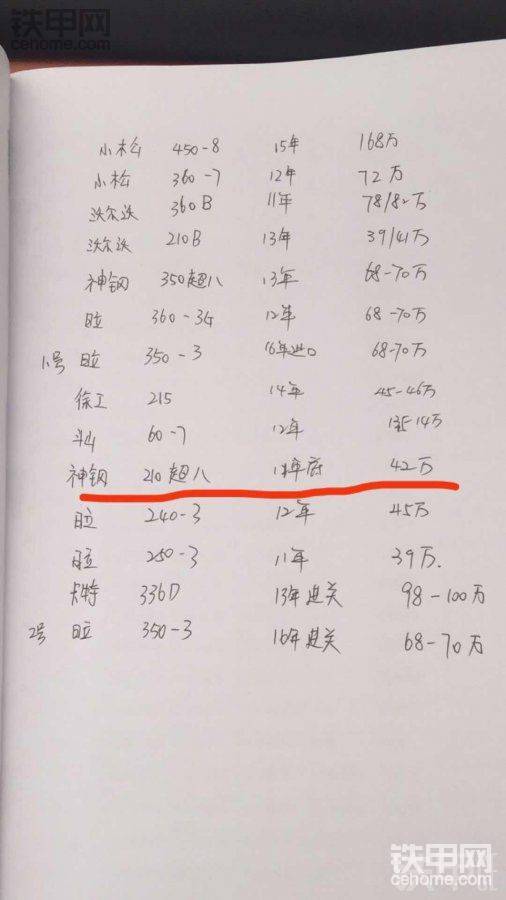 铁甲网
cehome.com
小松 450-8 15年 168万
小松 360-7 12年 72万
沃尔沃 360B 11年 78/82万
沃尔沃 210B 13年 39/41万
神钢 350超八 13年 68-70万
日立 360-3G 12年 68-70万
1号 日立 350-3 16年进口 68-70万
徐工 215 14年 45-46万
斗山 60-7 12年 14万
神钢 210超八 年底 42万
日立 240-3 12年 45万
日立 250-3 11年 39万.
卡特 336D 13年进关 98-100万
2号 日立 350-3 16年进关 68-70万
铁甲网
cehome.com